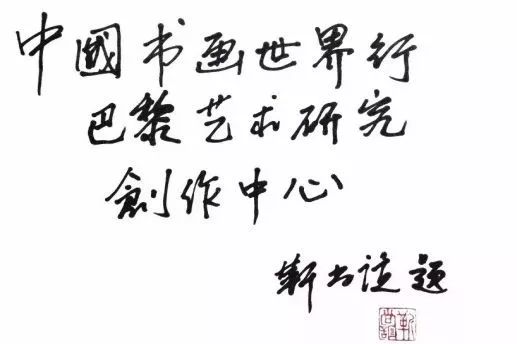 中國书画世界行
巴黎艺术研究
創作中心
靳尚谊题